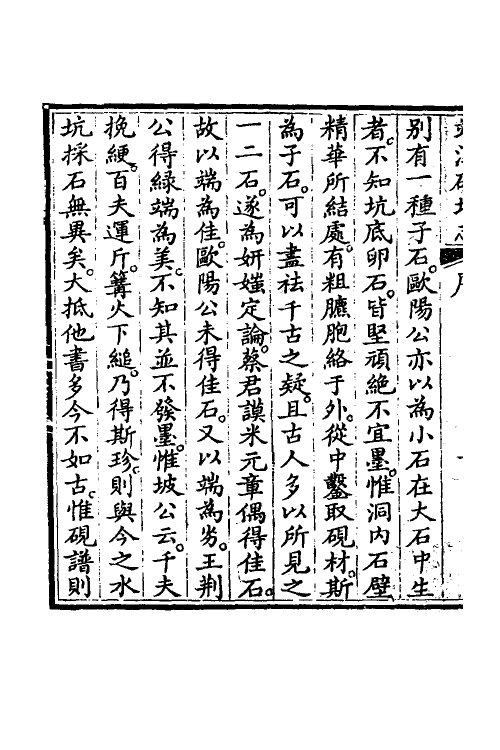 別有一種子石。歐陽公亦以為小石在大石中生
者。不知坑底卵石。皆堅頑絕不宜墨。惟洞內石壁
精華所結處。有粗臕胞絡于外。從中鑿取硯材。斯
為子石。可以盡祛千古之疑。且古人多以所見之
一二石。遂為妍媸定論。蔡君謨米元章偶得佳石。
故以端為佳。歐陽公未得佳石。又以端為劣。王荆
公得綠端為美。不知其並不發墨。惟坡公云。千夫
挽綆。百夫運斤。篝火下縋。乃得斯珍。則與今之水
坑採石無異矣。大抵他書多今不如古。惟硯譜則